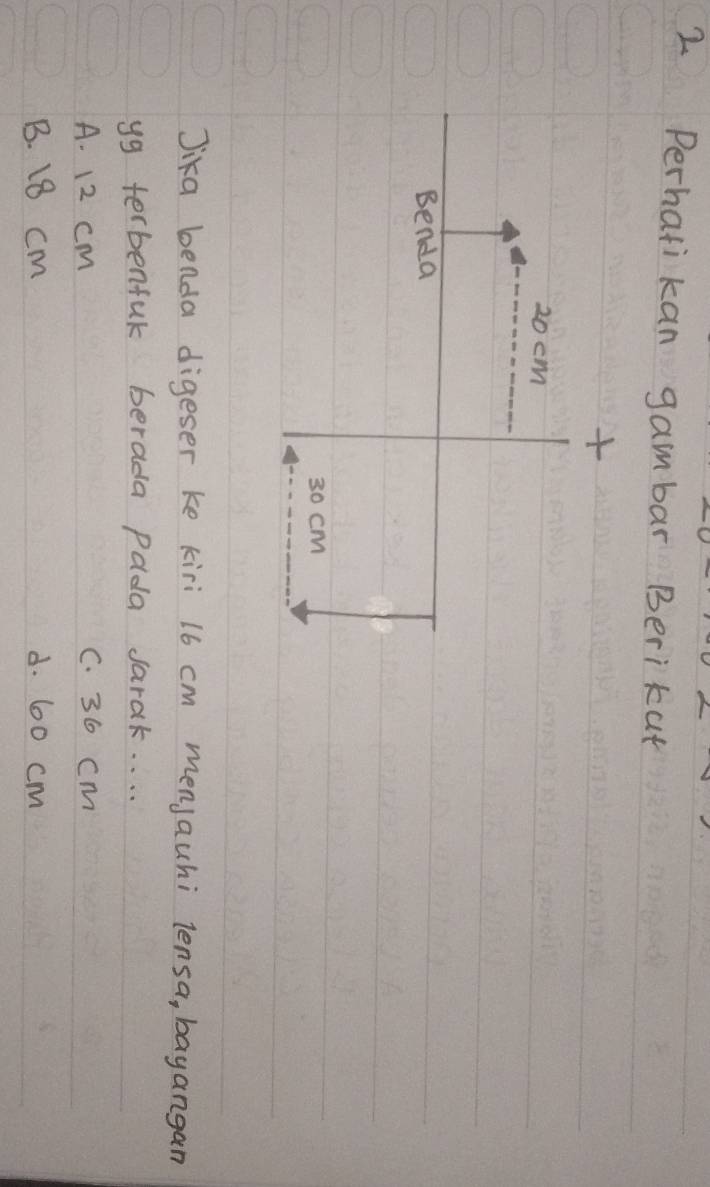 2 Perhatikan gambar Berikut
+
20 cm
Benda
30 cm
Jika benda digeser ke kiri 16 cm menjauhi lensa, bayangan
yg terbentuk berada pada Jarak....
A. 12 cm C. 36 cm
B. 18 cm d. 60 cm